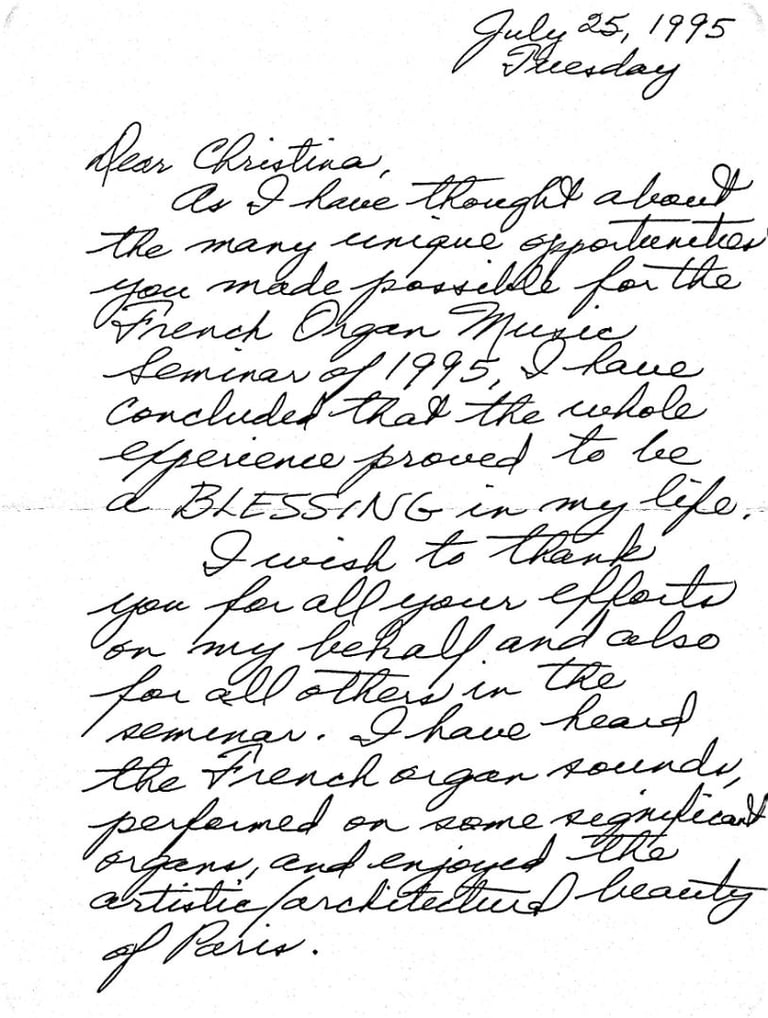 July 25, 1995
Tuesday
Dear Christina,
As I have thought about
the many unique opportunities
you made possible for the
French Organ Music
Seminar of 1995, I have
concluded that the whole
experience proved to be
a BLESSING in my life.
I wish to thank
you for all your efforts
on my behalf and also
for all others in the
seminar. I have heard
the French organ sounds,
performed on some significant
organs, and enjoyed the
artistic/architectural beauty
of Paris.